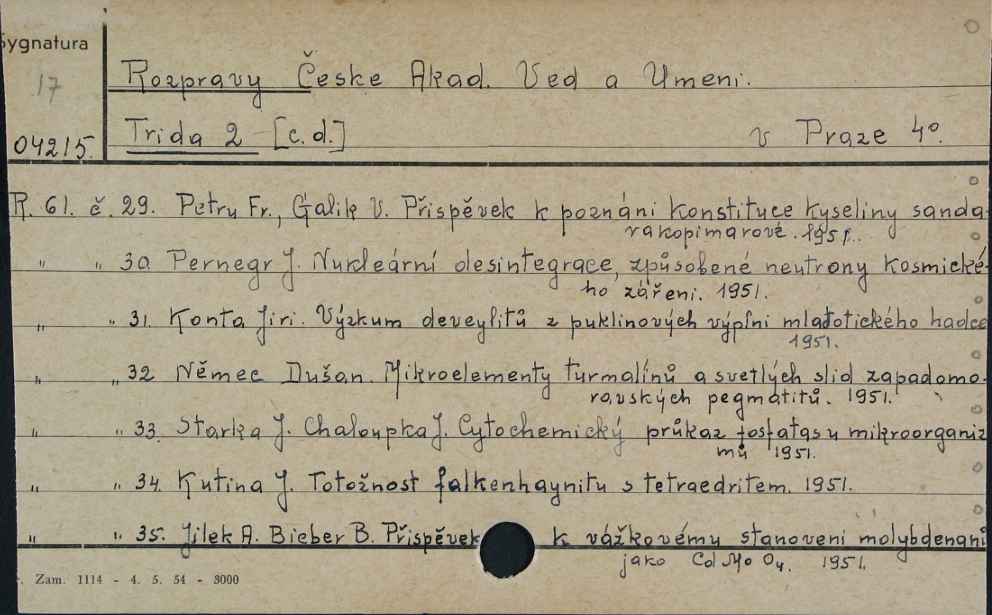 Sygnatura
17
Rozpravy České Akad. Ved a Umeni.
04215. Trida 2 - [c.d.] v Praze 4º.
R. 61. č. 29. Petru Fr., Galik V. Přispěvek k poznáni konstituce kyseliny sanda-
rakopimarové. 1951.
" " 30 Pernegr J. Nukleární desintegrace, způsobené neutrony kosmické-
ho zářeni. 1951.
" " 31. Konta Jiri. Výzkum deveylitů z puklinových výplni mladotického hadce
1951.
" " 32 Němec Dušan. Mikroelementy turmalínů a svetlých slid zapadomo-
ravských pegmatitů. 1951.
" " 33. Starka J. Chaloupka J. Cytochemický průkaz fosfatas u mikroorganiz
mů 1951.
" " 34. Kutina J. Totožnost falkenhaynitu s tetraedritem. 1951.
" " 35. Jilek A. Bieber B. Přispěvek k vážkovému stanoveni molybdenanů
jako Cd Mo O4. 1951.
. Zam. 1114 - 4. 5. 54 - 3000